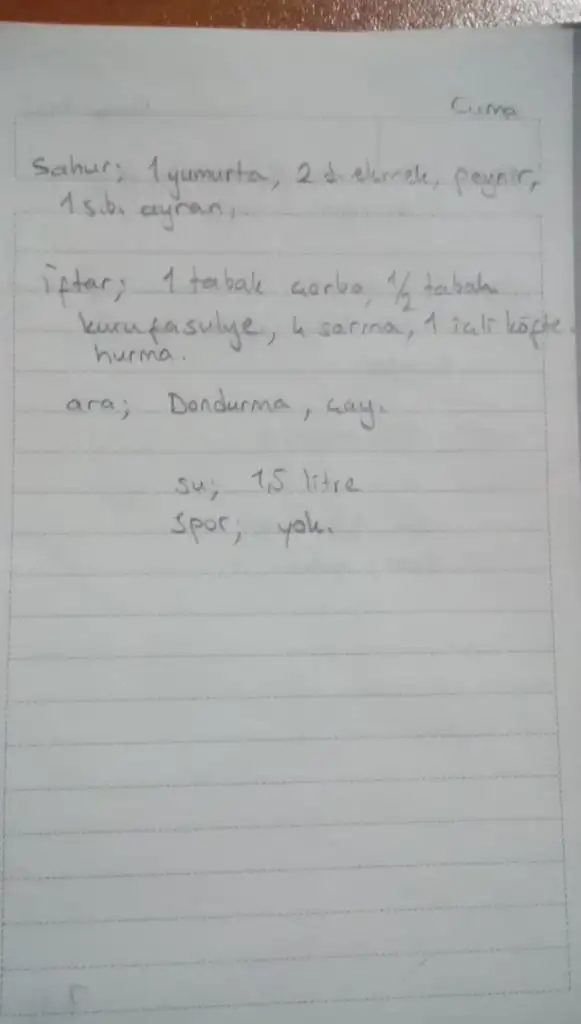 Cuma
Sahur; 1 yumurta, 2 d ekmek, peynir,
1 s.b. ayran,
iftar; 1 tabak çorba, 1/2 tabak
kurufasulye, 4 sarma, 1 içli köfte
hurma.
ara; Dondurma, çay.
su; 1,5 litre
Spor; yok.